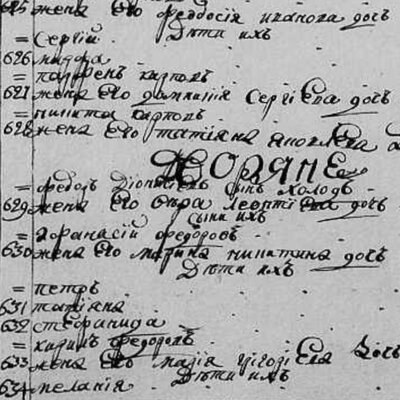 625 жена Его Феодосія иванова дочь
Дѣти ихъ
= Сергій
626
= карповъ
627 жена Его Сергіева дочь
= никита карповъ
628 жена Его татіяна яковлева
Дворяне
= федоръ сынъ холодъ
629 жена Его леонтіева дочь
сыни ихъ
= Афанасій федоровъ
630 жена Его марина никитина дочь
Дѣти ихъ
= петръ
631 татіяна
632 стефанида
= федоровъ
633 жена Его марія григоріева дочь
Дѣти ихъ
634 меланія